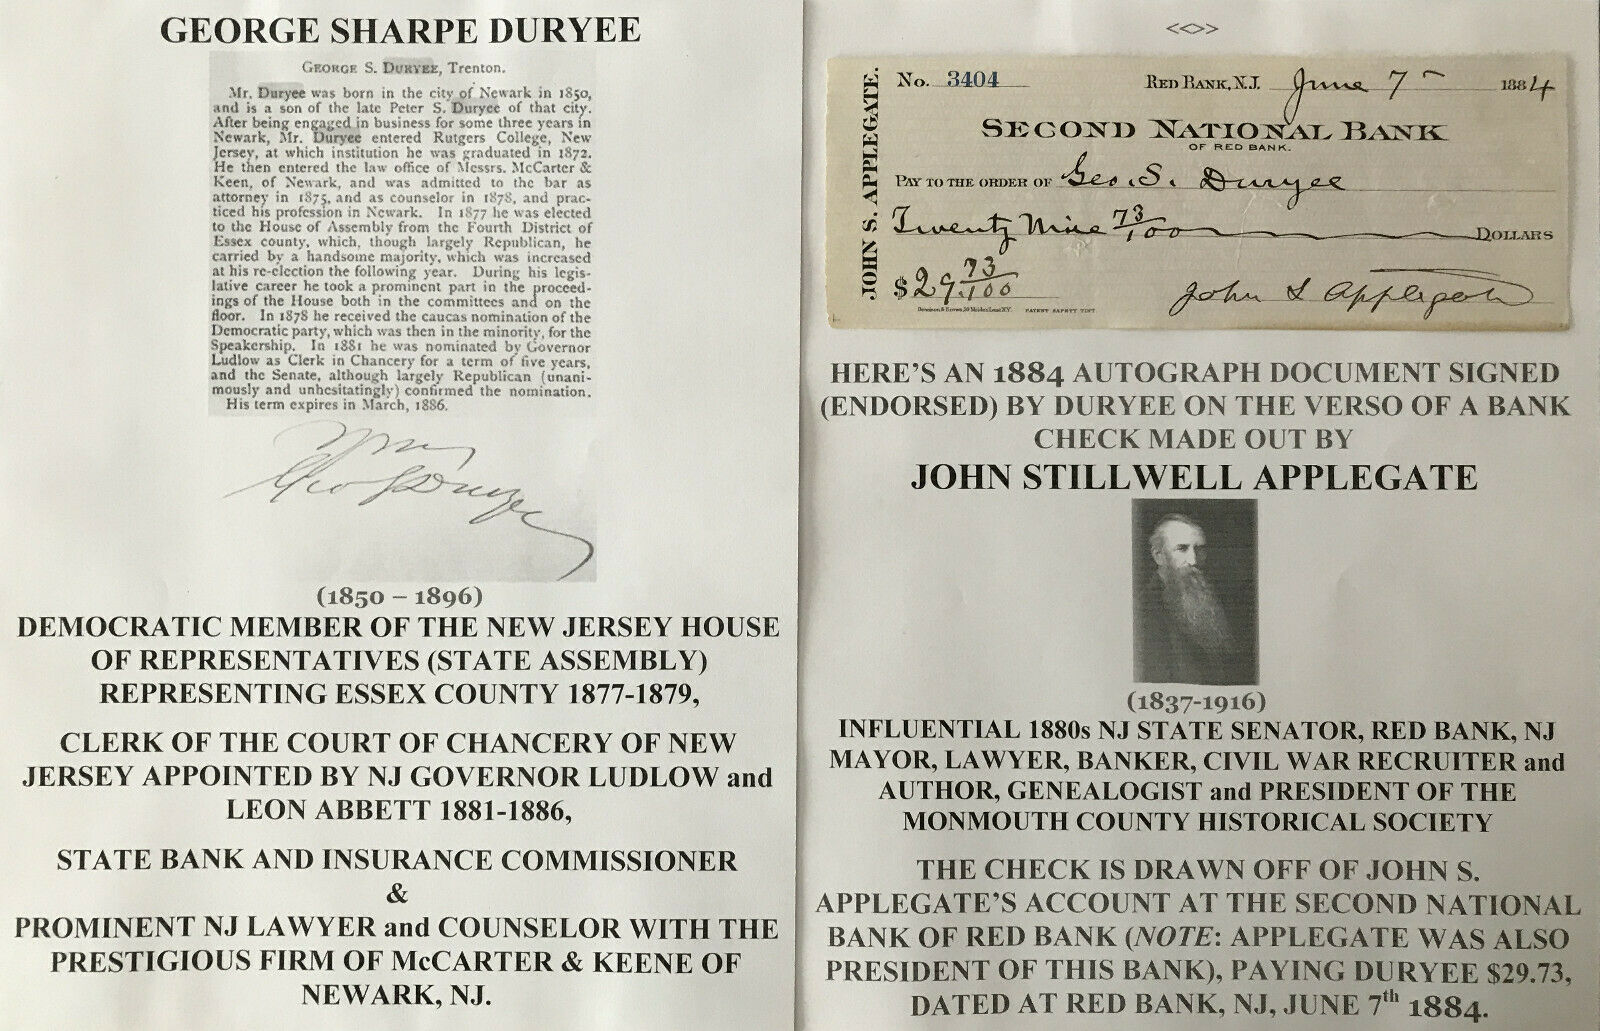 GEORGE SHARPE DURYEE
GEORGE S. DURYEE, Trenton.
Mr. Duryee was born in the city of Newark in 1850,
and is a son of the late Peter S. Duryee of that city.
After being engaged in business for some three years in
Newark, Mr. Duryee entered Rutgers College, New
Jersey, at which institution he was graduated in 1872.
He then entered the law office of Messrs. McCarter &
Keen, of Newark, and was admitted to the bar as
attorney in 1875, and as counselor in 1878, and prac-
ticed his profession in Newark. In 1877 he was elected
to the House of Assembly from the Fourth District of
Essex county, which, though largely Republican, he
carried by a handsome majority, which was increased
at his re-election the following year. During his legis-
lative career he took a prominent part in the proceed-
ings of the House both in the committees and on the
floor. In 1878 he received the caucas nomination of the
Democratic party, which was then in the minority, for the
Speakership. In 1881 he was nominated by Governor
Ludlow as Clerk in Chancery for a term of five years,
and the Senate, although largely Republican (unani-
mously and unhesitatingly) confirmed the nomination.
His term expires in March, 1886.
Geo S Duryee
(1850 – 1896)
DEMOCRATIC MEMBER OF THE NEW JERSEY HOUSE
OF REPRESENTATIVES (STATE ASSEMBLY)
REPRESENTING ESSEX COUNTY 1877-1879,
CLERK OF THE COURT OF CHANCERY OF NEW
JERSEY APPOINTED BY NJ GOVERNOR LUDLOW and
LEON ABBETT 1881-1886,
STATE BANK AND INSURANCE COMMISSIONER
&
PROMINENT NJ LAWYER and COUNSELOR WITH THE
PRESTIGIOUS FIRM OF McCARTER & KEENE OF
NEWARK, NJ.
<<>>
JOHN S. APPLEGATE.
No. 3404 RED BANK, N.J. June 7 1884
SECOND NATIONAL BANK
OF RED BANK.
PAY TO THE ORDER OF Geo. S. Duryee
Twenty Nine 73/100 DOLLARS
$29 73/100 John S Applegate
PATENT SAFETY TINT
HERE'S AN 1884 AUTOGRAPH DOCUMENT SIGNED
(ENDORSED) BY DURYEE ON THE VERSO OF A BANK
CHECK MADE OUT BY
JOHN STILLWELL APPLEGATE
(1837-1916)
INFLUENTIAL 1880s NJ STATE SENATOR, RED BANK, NJ
MAYOR, LAWYER, BANKER, CIVIL WAR RECRUITER and
AUTHOR, GENEALOGIST and PRESIDENT OF THE
MONMOUTH COUNTY HISTORICAL SOCIETY
THE CHECK IS DRAWN OFF OF JOHN S.
APPLEGATE'S ACCOUNT AT THE SECOND NATIONAL
BANK OF RED BANK (NOTE: APPLEGATE WAS ALSO
PRESIDENT OF THIS BANK), PAYING DURYEE $29.73,
DATED AT RED BANK, NJ, JUNE 7th 1884.